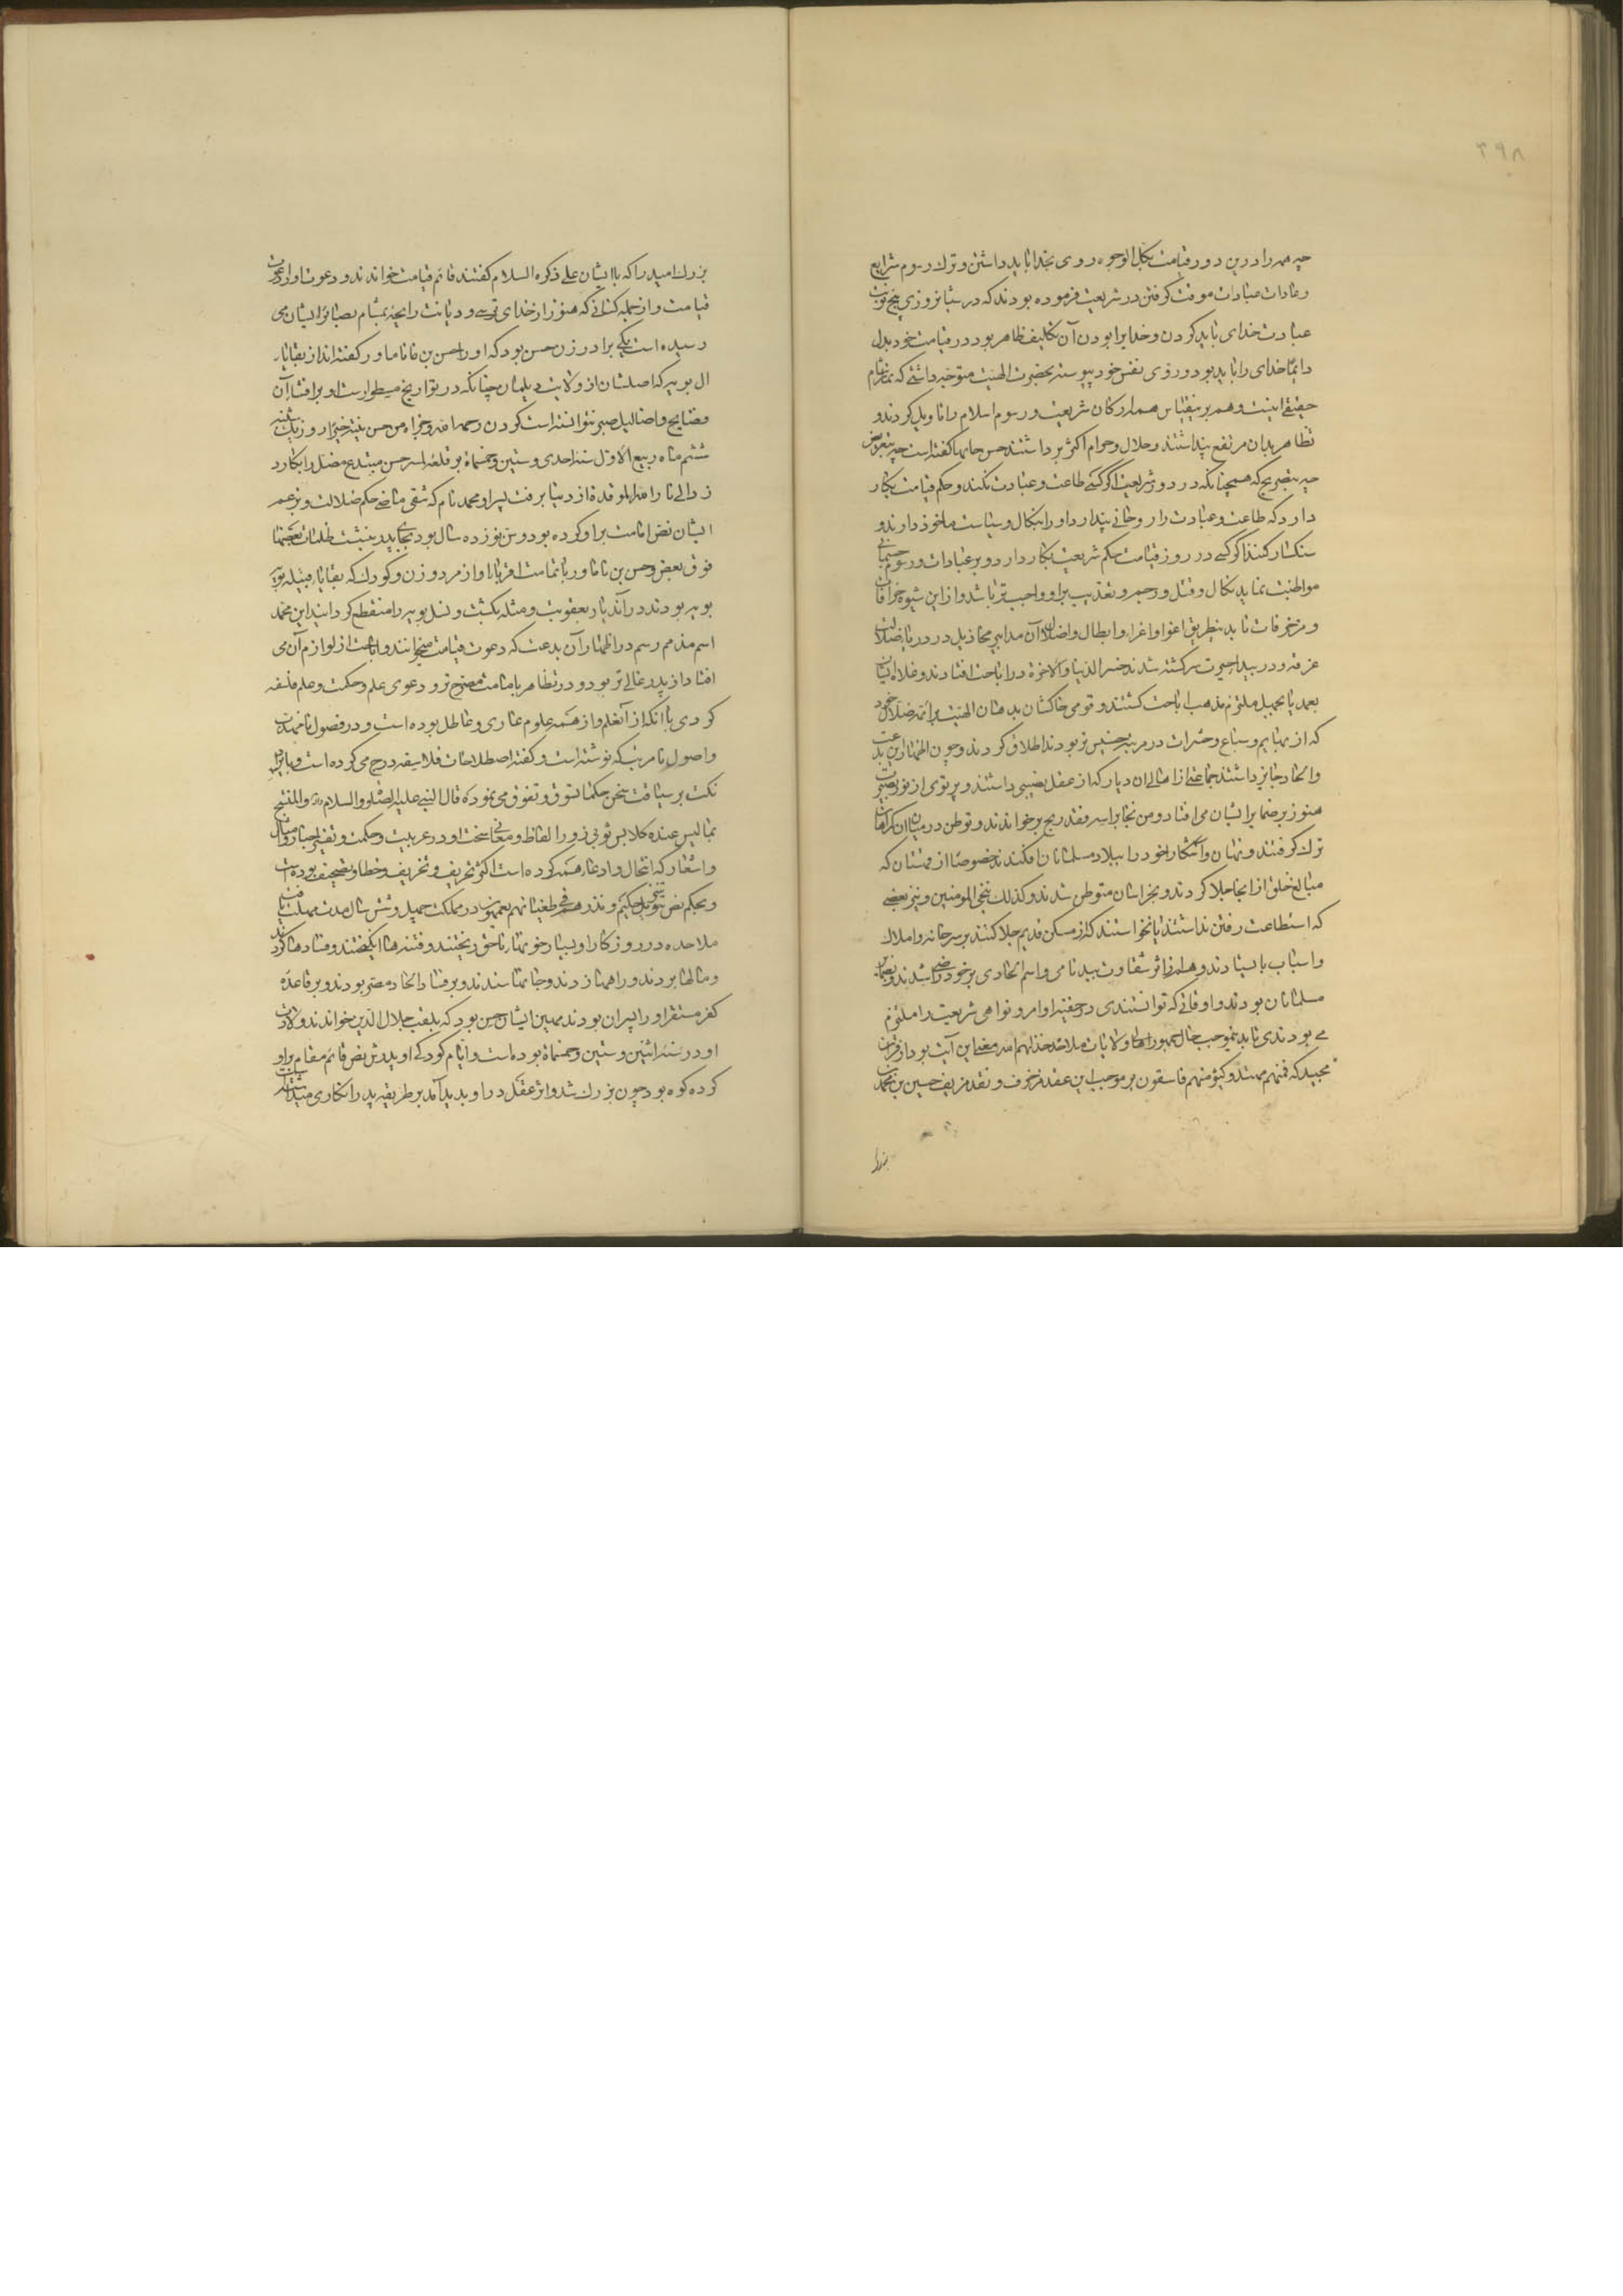 ۳۹۸
چه همه را درین دور قیامت بکل الوجوه روی بخدا باید داشتن و ترک رسوم شرایع
و عادات عبادات موقت گرفتن در شریعت فرموده بودند که در شبانروزی پنج نوبت
عبادت خدای باید کردن و خدایرا بودن آن تکلیف ظاهر بود در قیامت خود بدل
دایما خدای را باید بود و روی نفس خود پیوسته بحضرت الهیت متوجه داشتن که نماز
حقیقی اینست و هم برینقیاس همه ارکان شریعت و رسوم اسلام را تاویل کردند و
تظاهر بدان مرتفع پنداشتند و حلال و حرام اکثر برداشتند حسن جایها گفته است چه بتعریض
چه بتصریح که همچنانکه در دور شریعت اگر کسی طاعت و عبادت نکند و حکم قیامت بکار
دارد که طاعت و عبادت را روحانی پندارد او را بنکال و سیاست ماخوذ دارند و
سنکسار کنند اگر کسی در روز قیامت حکم شریعت بکار دارد و بر عبادات و رسوم جسمانی
مواظبت نماید نکال و قتل و رجم و تعذیب بر او واجبتر باشد و ازین شیوه خرافات
و مزخرفات تا بدینطریق اغوا و اغراء و ابطال و اضلال آن مدابیر مخاذیل در دریا ضلالت
غرقه و در بیداء حیرت سرگشته شدند خسر الدنیا والاخره در اباحت افتادند و غلاة ایشان
بعد یا بجهل ملتزم مذهب اباحت گشتند و قومی خاکشان بدهان الهیت بر ائمه ضلال خود
که از بهایم و سباع و حشرات در مرتبه خسیس‌تر بودند اطلاق کردند و چون اظهار این بدعت
و الحاد جایز داشتند جماعتی از اهالی ان دیار که از عقل نصیبی داشتند و پرتوی از نور بصیرت
هنوز بر ضمایر ایشان می افتاد و من نجا برأسه فقد ربح برخواندند و توطن در میان ان گمراهان
ترک گرفتند و نهان و آشکارا خود را ببلاد مسلمانان افکندند خصوصا از قهستان که
مبالغ خلق از انجا جلا کردند و بخراسان متوطن شدند و کذلک ننجی المومنین و نیز بعضی
که استطاعت رفتن نداشتند یا نخواستند که از مسکن قدیم جلا کنند بر سر خانه و املاک
و اسباب بایستادند و هم از اثر شقاوت ببدنامی و اسم الحادی بر خود راضی شدند و بضمایر
مسلمانان بودند و اوقاتی که توانستندی در خفیه اوامر و نواهی شریعت را ملتزم
می بودندی تا بدینموجب حال جمهور اهالی ولایات ملاحده خذلهم الله معنی این آیت بود از قرآن
مجید که فمنهم مهتد و کثیر منهم فاسقون بر موجب این عقد مزخرف و نقد مزیف حسین بن محمد
بزرگ
بزرگ امید را که با ایشان علی ذکره السلام گفتند قائم قیامت خواندند و دعوت او را دعوت
قیامت و از جمله کسانی که هنوز از خدای ترسی و دیانت رایحه بمشام بصایر ایشان می
رسیده است یکی برادر زن حسن بود که او را حسن بن ناماور گفته اند از بقایاء
ال بویه که اصلشان از ولایت دیلمان چنانکه در تواریخ مسطور است او بر افشاء آن
فضایح و اضالیل صبر نتوانسته است کردن رحمه الله و جزاه من حسن نیته خیرا روز یکشنبه
ششم ماه ربیع الاول سنه احدی و ستین و خمسمأة بر قلعه لمسر حسن مبتدع مضل را بکارد
زد الی نار الله الموقدة از دنیا برفت پسر او محمد نام که شقی ماضی حکم ضلالت و بزعم
ایشان نص امامت بر او کرده بود و سن نوزده سال بود بجای پدر بنشست ظلمات بعضها
فوق بعض و حسن بن ناماور با تمامت اقرباء او از مرد و زن و کودک که بقایاء قبیله بویه
بویه بودند در آن دیار بعقوبت و مثله بکشت و نسل بویه را منقطع گردانید این محمد
اسم مذمم رسم در اظهار آن بدعت که دعوت قیامت میخوانند و اباحت از لوازم آن می
افتاد از پدر غالی تر بود و در تظاهر بامامت مصرح تر و دعوی علم و حکمت و علم فلسفه
کردی با انکه از آن علم و از همه علوم عاری و عاطل بوده است و در فصول نامهذب
و اصول نامرتب که نوشته است و گفته اصطلاحات فلاسفه درج می کرده است و بایراد
نکت بر سیاقت سخن حکما تسوق و تفوق می نموده قال النبی علیه الصلوة والسلام والمتشبع
بما لیس عنده کلابس ثوبی زور الفاظ و معانی سخت او در عربیت و حکمت و تفسیر و اخبار و امثال
و اشعار که انتحال و ادعاء همه کرده است اکثر تحریف و تخریف و خطا و تصحیف بوده است
و بحکم نص تنزیل حکیم و نذرهم فی طغیانهم یعمهون در مملکت چهل و شش سال مدت مهلت یافت
ملاحده در روزگار او بسیار خونها بناحق ریختند و فتنه ها انگیختند و فسادها کردند
و مالها بردند و راهها زدند و جانها ستدند و بر فساد الحاد مصر بودند و بر قاعده
کفر مستقر او را پسران بودند مهین ایشان حسن بود که بلقب جلال الدین خواندند ولادت
او در سنه اثنین و ستین و خمسمأة بوده است و ایام کودکی او پدرش نص قائم مقام بر او
کرده کوه بود چون بزرگ شد و اثر عقل در او پدید آمد بر طریقه پدر انکاری می